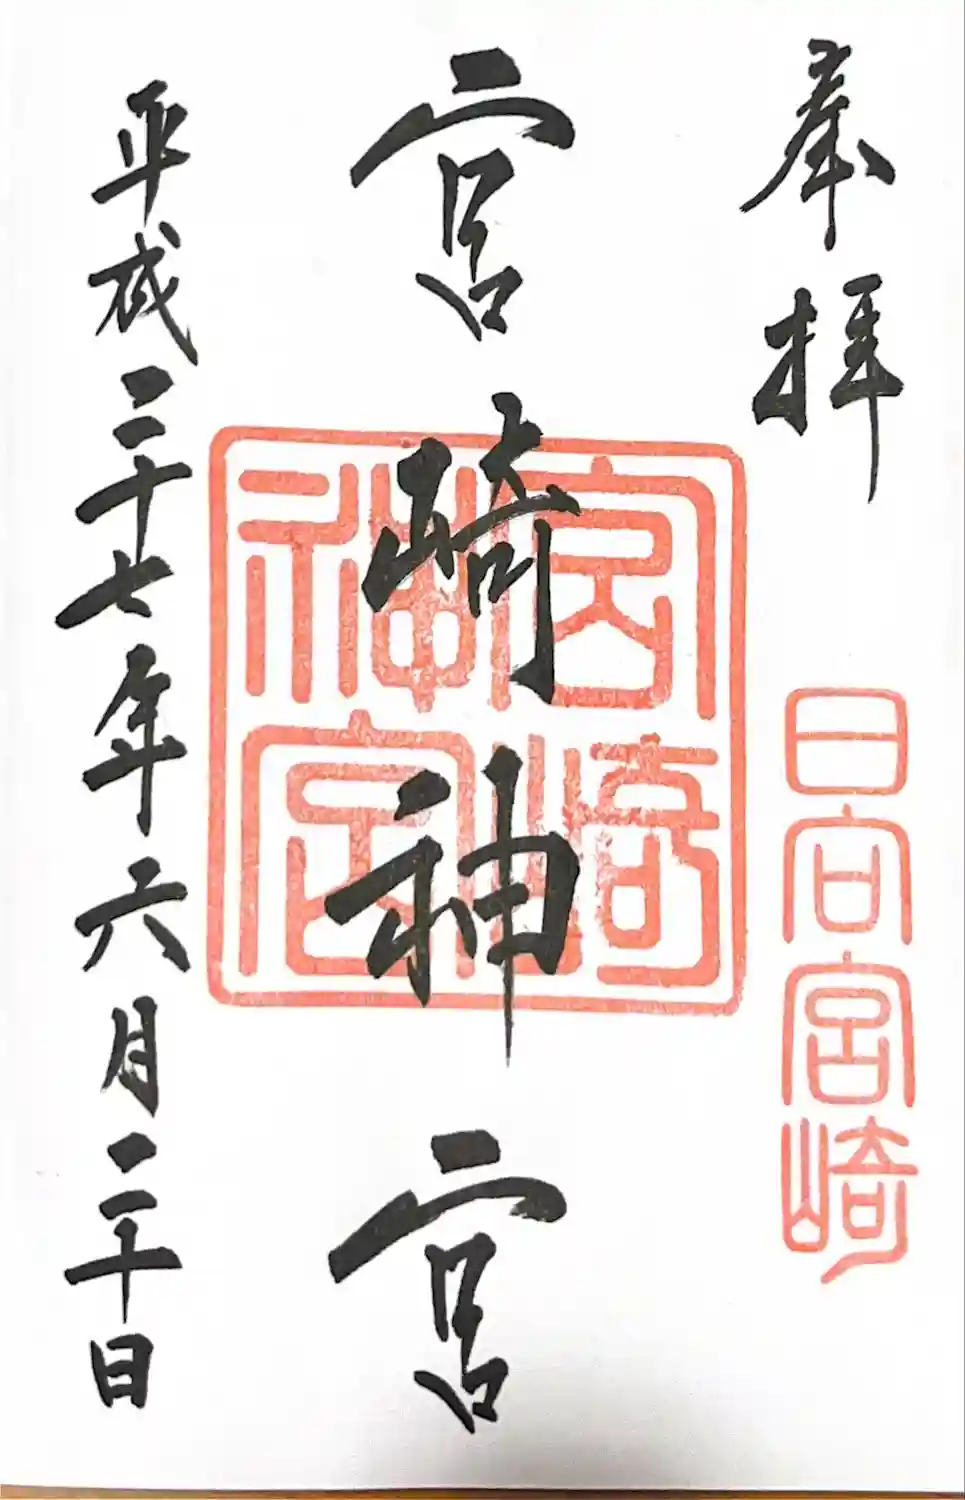 奉拝
日向宮崎
宮崎神宮
宮崎
神宮
平成二十七年六月二十日